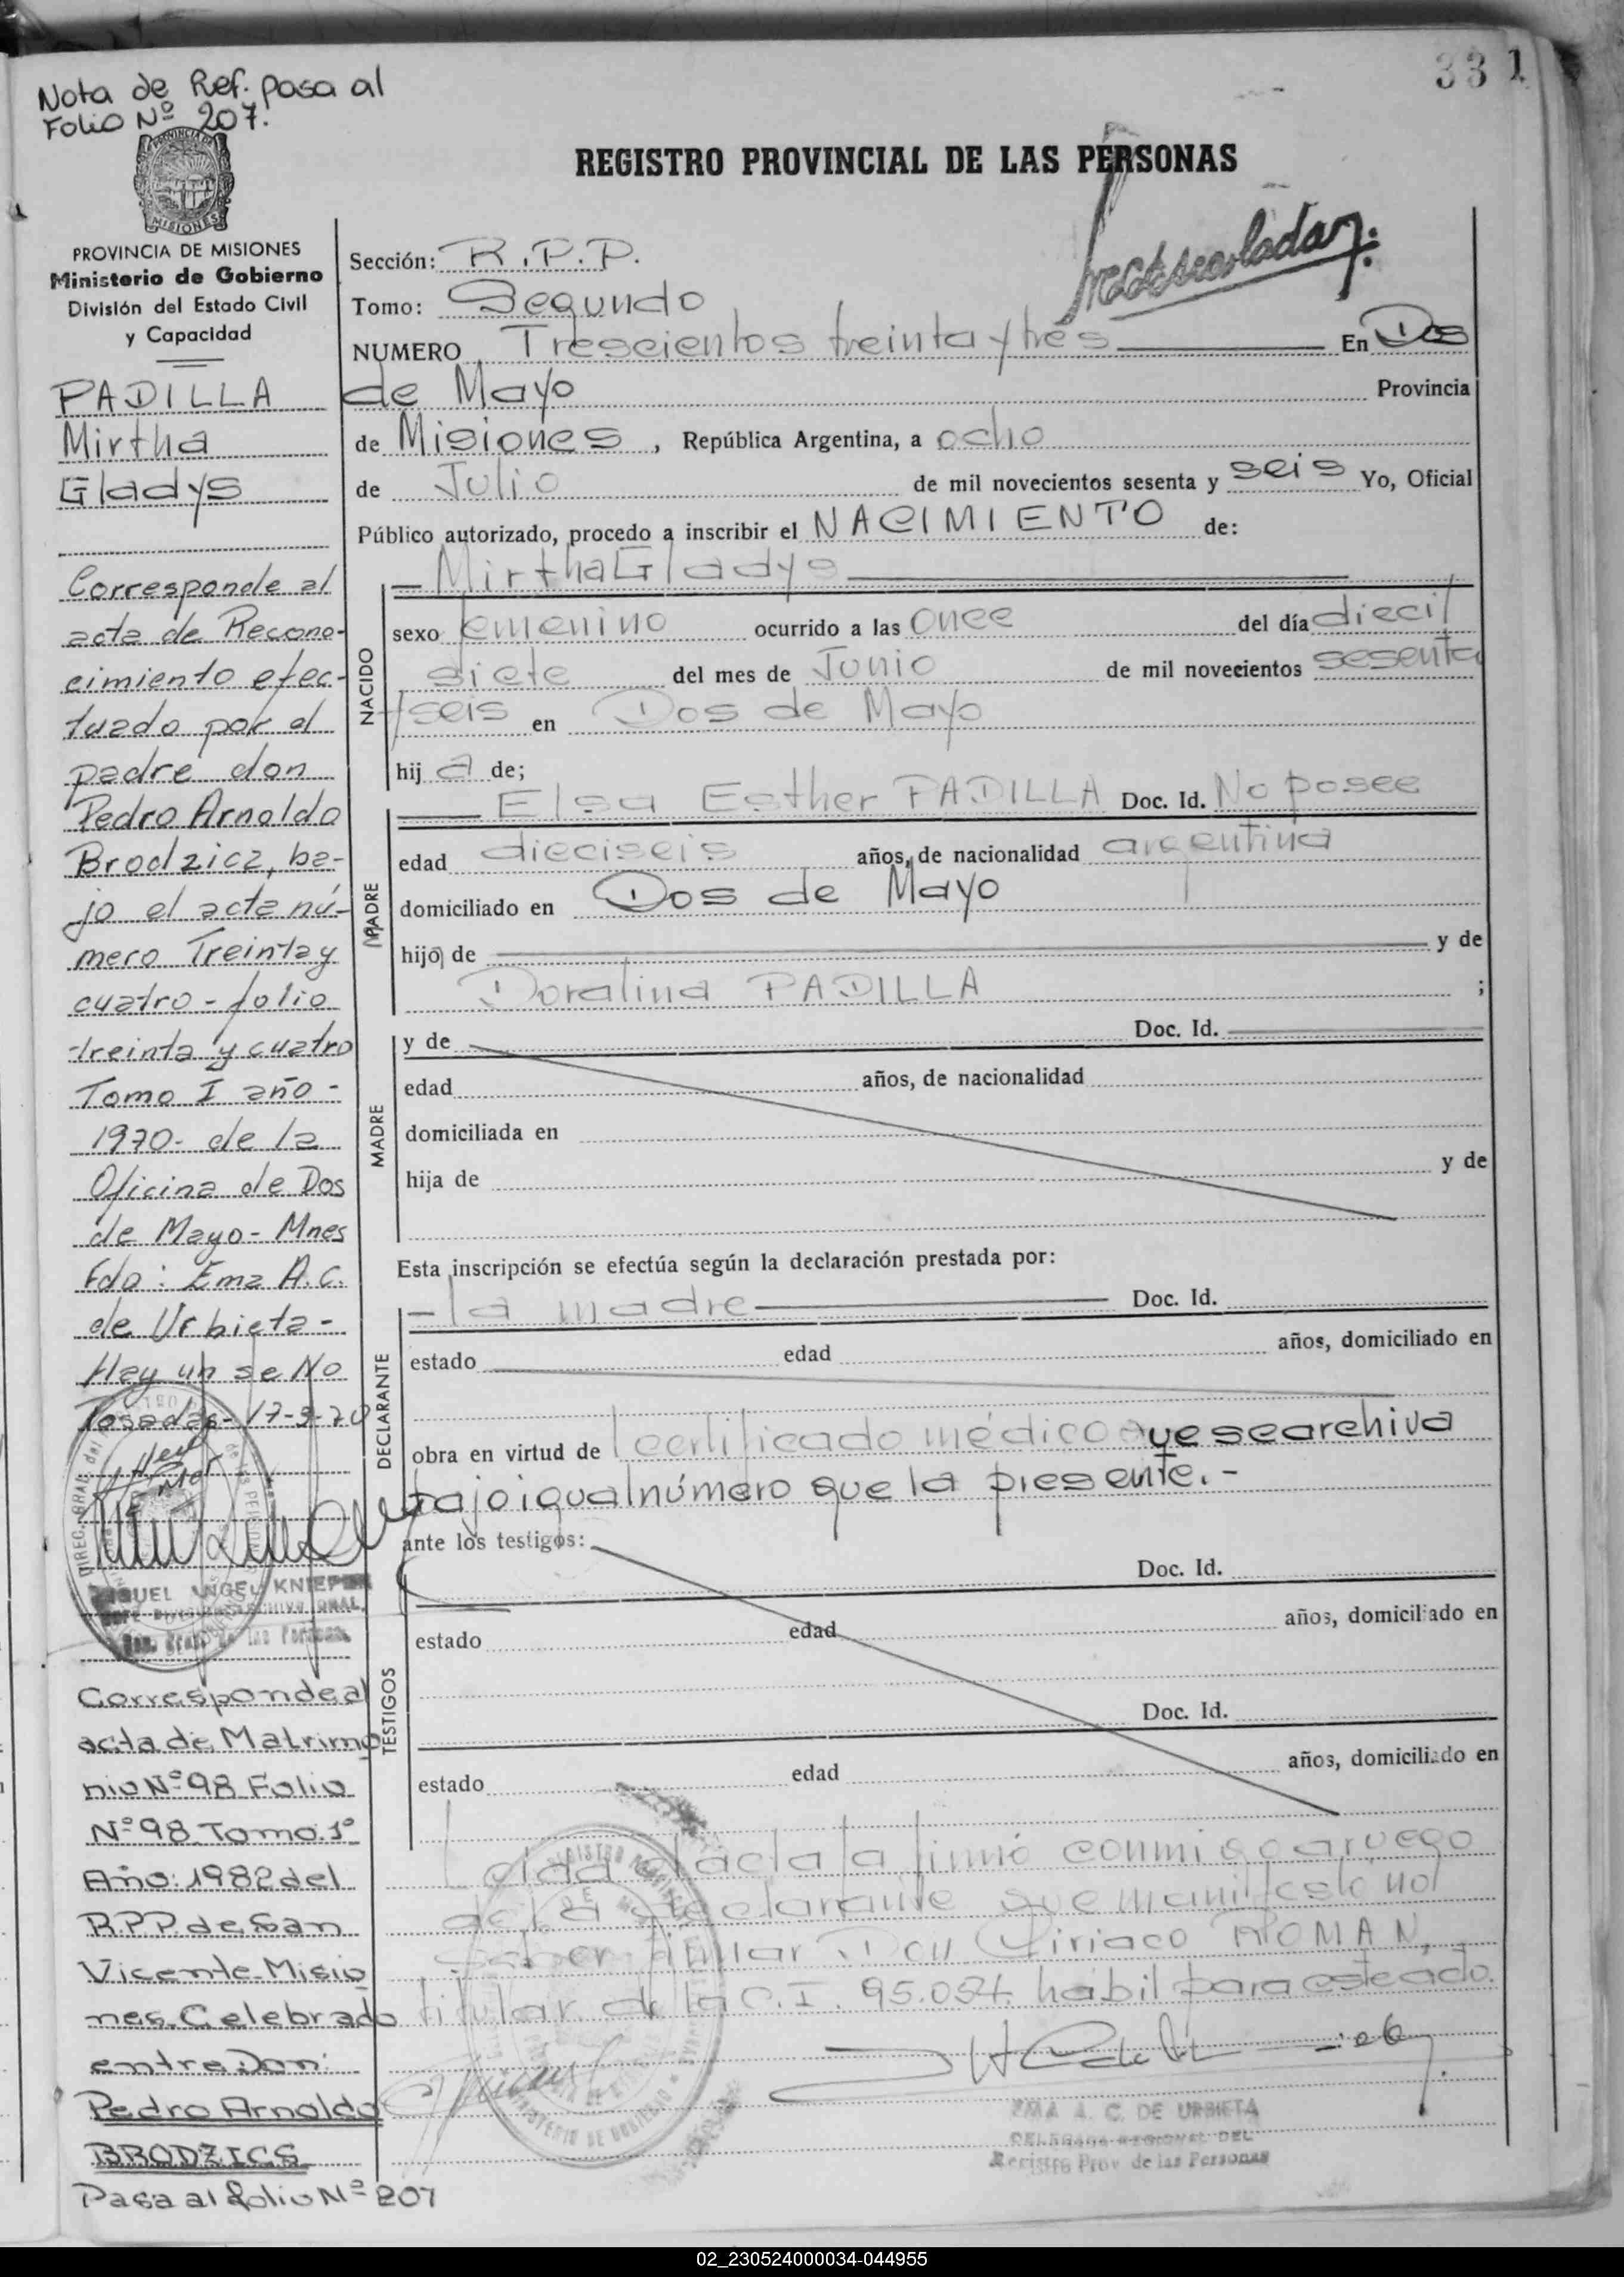 331
Nota de Ref. pasa al
Folio Nº 207.
PROVINCIA DE MISIONES
Ministerio de Gobierno
División del Estado Civil
y Capacidad
PADILLA
Mirtha
Gladys
Corresponde al
acta de Recono-
cimiento efec-
tuado por el
padre don
Pedro Arnoldo
Brodzicz, ba-
jo el acta nú-
mero Treinta y
cuatro - folio
treinta y cuatro
Tomo I año -
1970- de la
Oficina de Dos
de Mayo - Mnes
Fdo: Ema A.C.
de Urbieta -
Hay un se No
Posadas - 17-9-70
MIGUEL ANGEL KNIEPER
Corresponde al
acta de Matrimo
nio Nº 98 Folio
Nº 98 Tomo 1º
Año: 1982 del
R.P.P. de San
Vicente-Misio
nes. Celebrado
entre Don:
Pedro Arnoldo
BRODZICS
Pasa al folio Nº 207
REGISTRO PROVINCIAL DE LAS PERSONAS
Sección: R.P.P.
Tomo: Segundo
NUMERO Trescientos treinta y tres En Dos
de Mayo Provincia
de Misiones, República Argentina, a ocho
de Julio de mil novecientos sesenta y seis Yo, Oficial
Público autorizado, procedo a inscribir el NACIMIENTO de:
NACIDO
Mirtha Gladys
sexo femenino ocurrido a las once del día dieci/
siete del mes de Junio de mil novecientos sesenta
y seis en Dos de Mayo
hij a de;
MADRE
Elsa Esther PADILLA Doc. Id. No posee
edad dieciseis años, de nacionalidad argentina
domiciliado en Dos de Mayo
hijo de y de
Doralina PADILLA ;
MADRE
y de Doc. Id.
edad años, de nacionalidad
domiciliada en
hija de y de
Esta inscripción se efectúa según la declaración prestada por:
DECLARANTE
la madre Doc. Id.
estado edad años, domiciliado en
obra en virtud de certificado médico que se archiva
bajo igual número que la presente.-
ante los testigos:
TESTIGOS
Doc. Id.
estado edad años, domiciliado en
Doc. Id.
estado edad años, domiciliado en
Leida el acta la firmó conmigo a ruego
de la declarante que manifestó no/
saber firmar Don Ciriaco ROMAN,
titular de la C.I. 95.054. hábil para este acto.
EMA A. C. DE URBIETA
DELEGADA REGIONAL DEL
Registro Prov. de las Personas
02_230524000034-044955